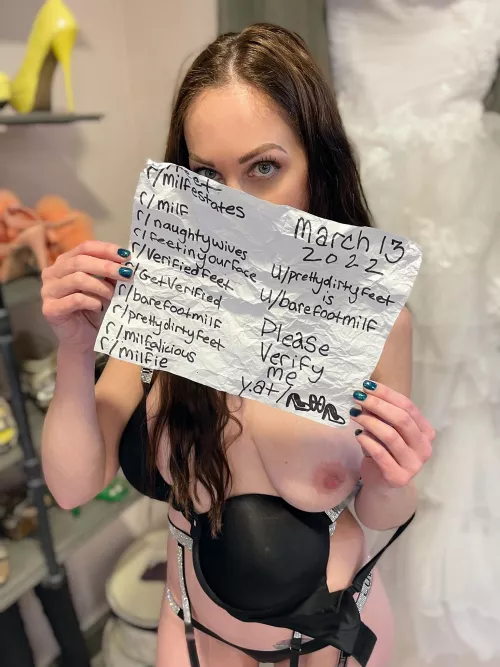 r/milfestates
r/milf
r/naughtywives
r/feetinyourface
r/Verifiedfeet
r/GetVerified
r/barefootmilf
r/prettydirtyfeet
r/milfalicious
r/milfie
March 13
2022
u/prettydirtyfeet
is
u/barefootmilf
Please
Verify
me
y.at/